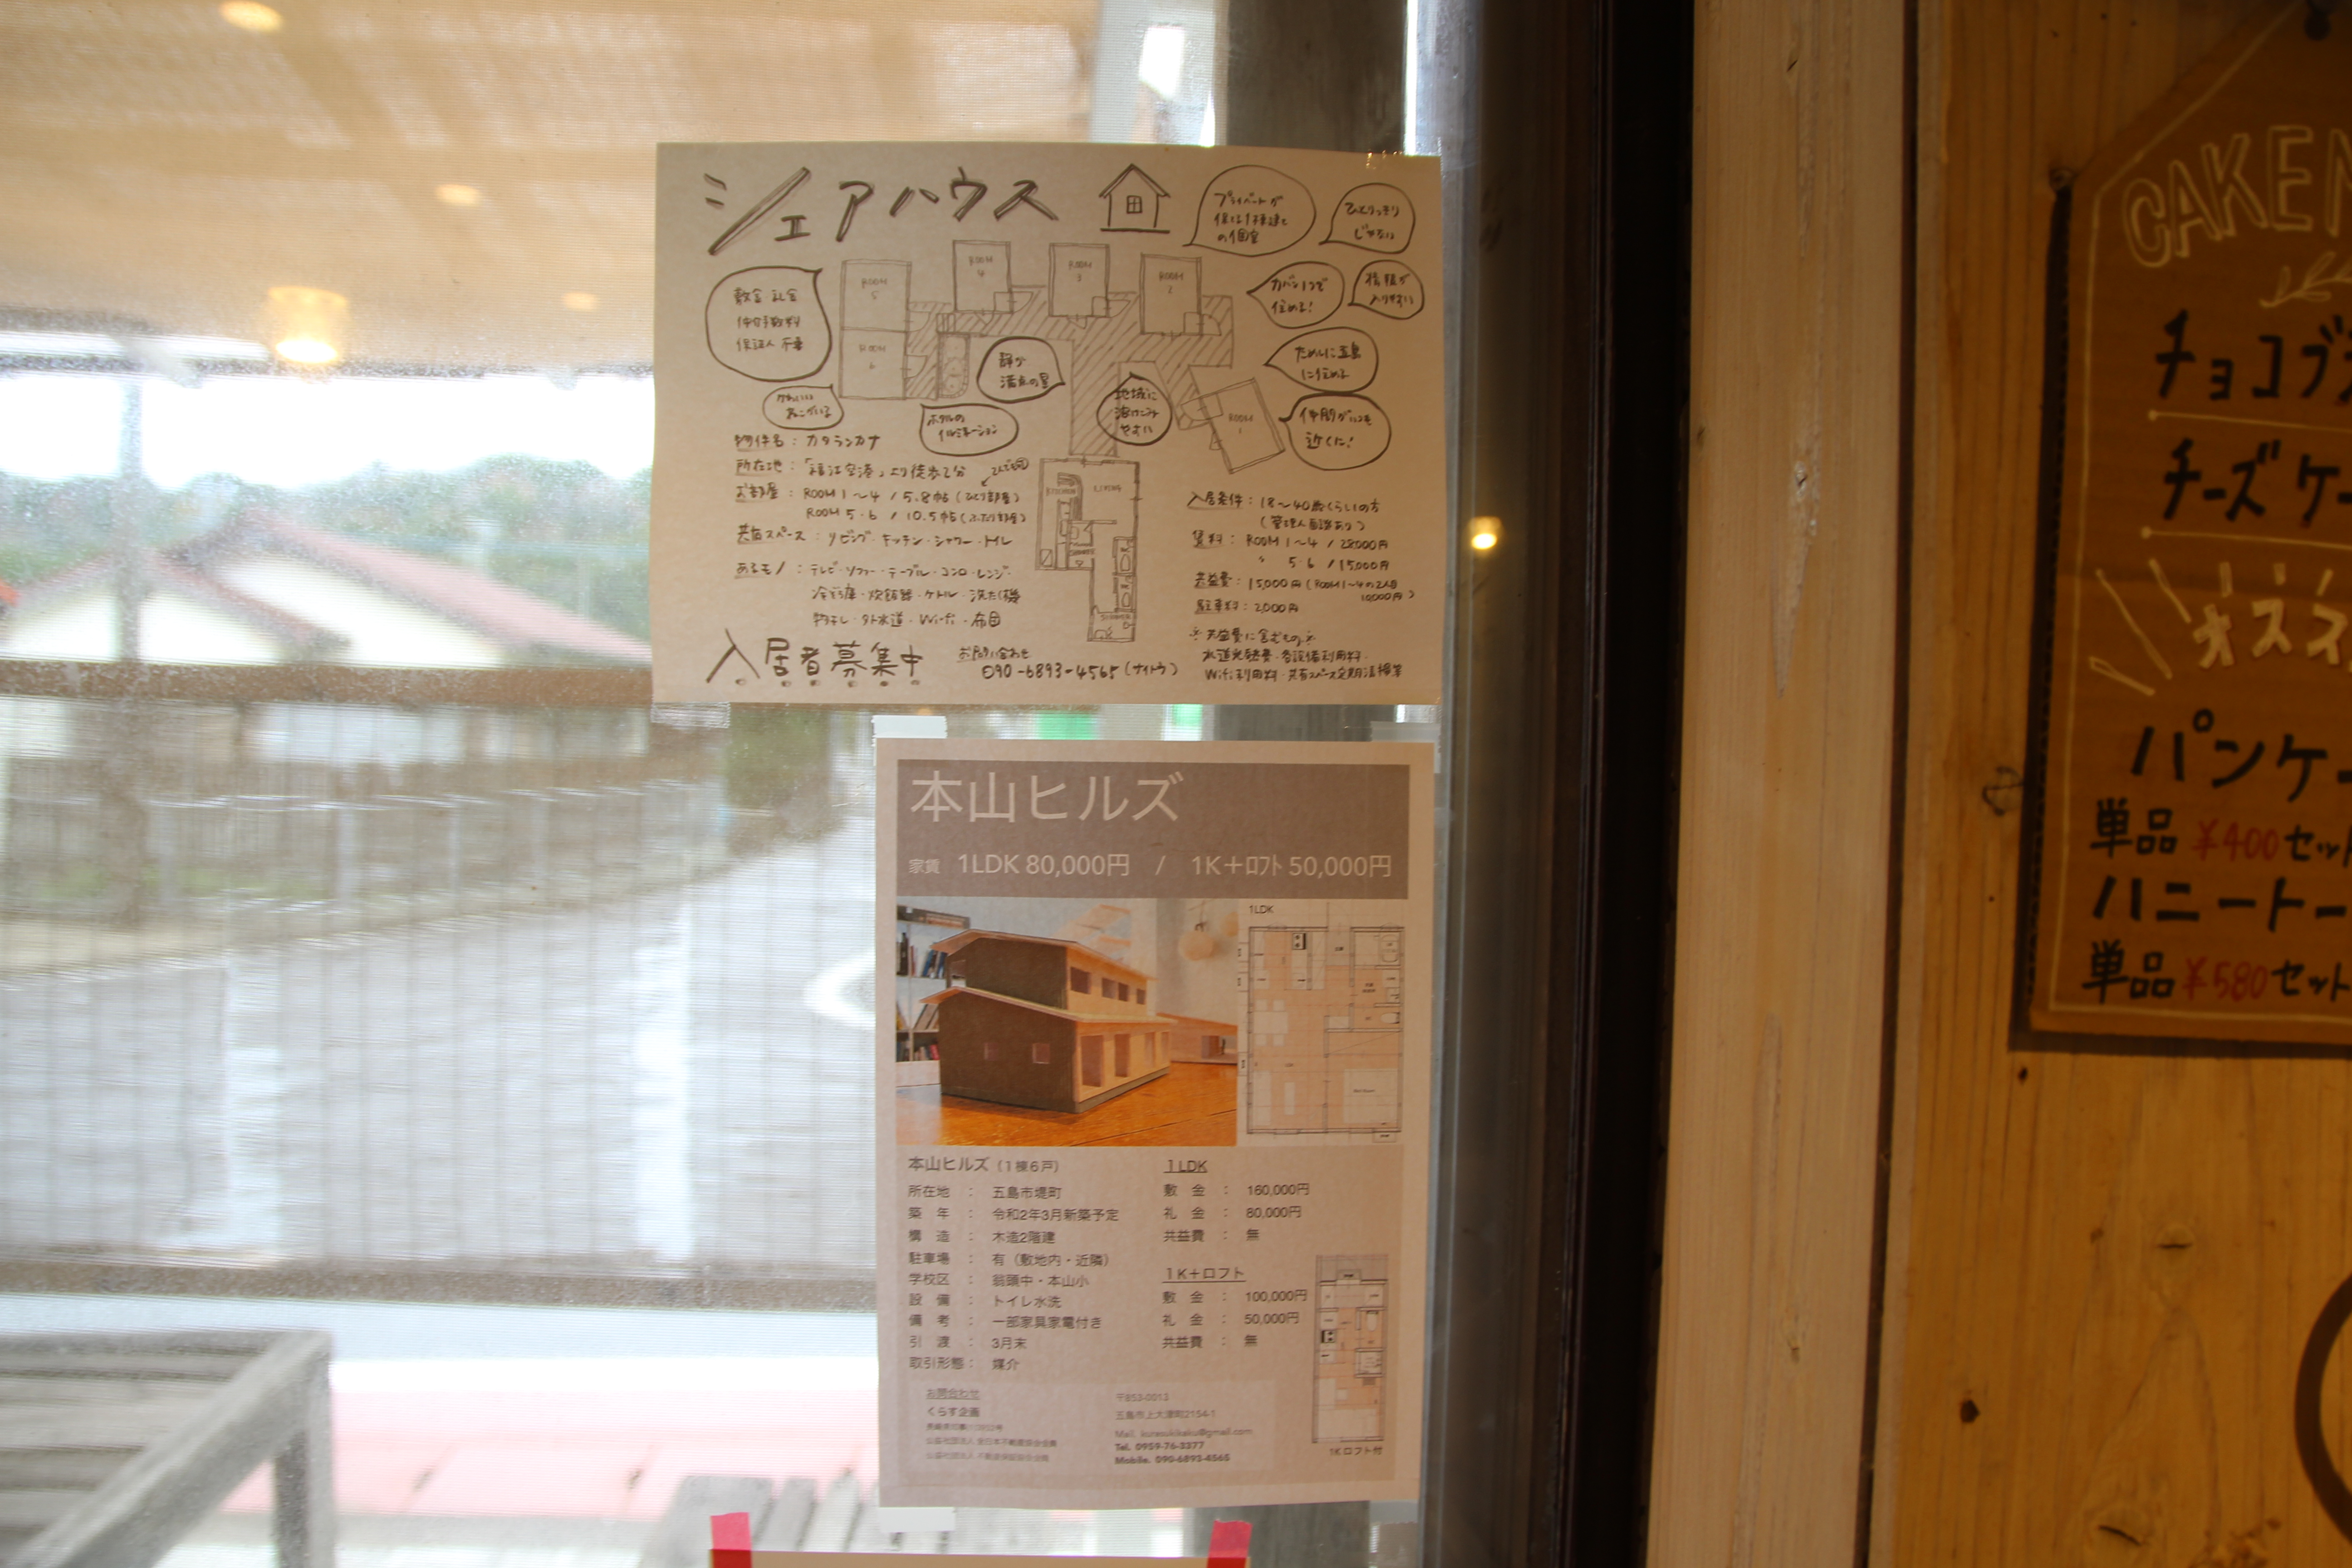 シェアハウス
プライベートが
保てる1棟建て
の個室
ひとりっきり
じゃない
敷金 礼金
仲介手数料
保証人 不要
ROOM
5
ROOM
4
ROOM
3
ROOM
2
カバン1つで
住める!
ROOM
6
静か
満点の星
地域に
溶けこみ
やすい
ためしに五島
に住める
かわいい
ねこがいる
ホタルの
イルミネーション
ROOM
1
仲間がいつも
近くに!
物件名:カタランカナ
所在地:「福江空港」より徒歩2分
お部屋:ROOM 1〜4 / 5.8帖(ひとり部屋)
ROOM 5・6 / 10.5帖(ふたり部屋)
共有スペース:リビング・キッチン・シャワー・トイレ
あるモノ:テレビ・ソファー・テーブル・コンロ・レンジ・
冷ぞう庫・炊飯器・ケトル・洗たく機
物干し・外水道・Wi-Fi・布団
KITCHEN
LIVING
SHOWER
入居条件:18〜40歳くらいの方
(管理人面談あり)
賃料:ROOM 1〜4 / 28000円
〃 5・6 / 15,000円
共益費:15,000円(ROOM1〜4の2人目
10,000円)
駐車料:2,000円
※共益費に含むもの※
水道光熱費・各設備利用料・
Wifi利用料・共有スペース定期清掃等
入居者募集中
お問い合わせ
090-6893-4565(ナイトウ)
本山ヒルズ
家賃 1LDK 80,000円 / 1K+ロフト 50,000円
1LDK
本山ヒルズ(1棟6戸)
所在地 : 五島市堤町
築 年 : 令和2年3月新築予定
構 造 : 木造2階建
駐車場 : 有(敷地内・近隣)
学校区 : 翁頭中・本山小
設 備 : トイレ水洗
備 考 : 一部家具家電付き
引 渡 : 3月末
取引形態: 媒介
1LDK
敷 金 : 160,000円
礼 金 : 80,000円
共益費 : 無
1K+ロフト
敷 金 : 100,000円
礼 金 : 50,000円
共益費 : 無
1Kロフト付
お問合わせ
くらす企画
公益社団法人 全日本不動産協会会員
公益社団法人 不動産保証協会会員
〒853-0013
五島市上大津町2154-1
Mail. kurasukikaku@gmail.com
Tel. 0959-76-3377
Mobile. 090-6893-4565
CAKE
チョコブラ
チーズケ
オスス
パンケー
単品 ¥400 セット
ハニートー
単品 ¥580 セット